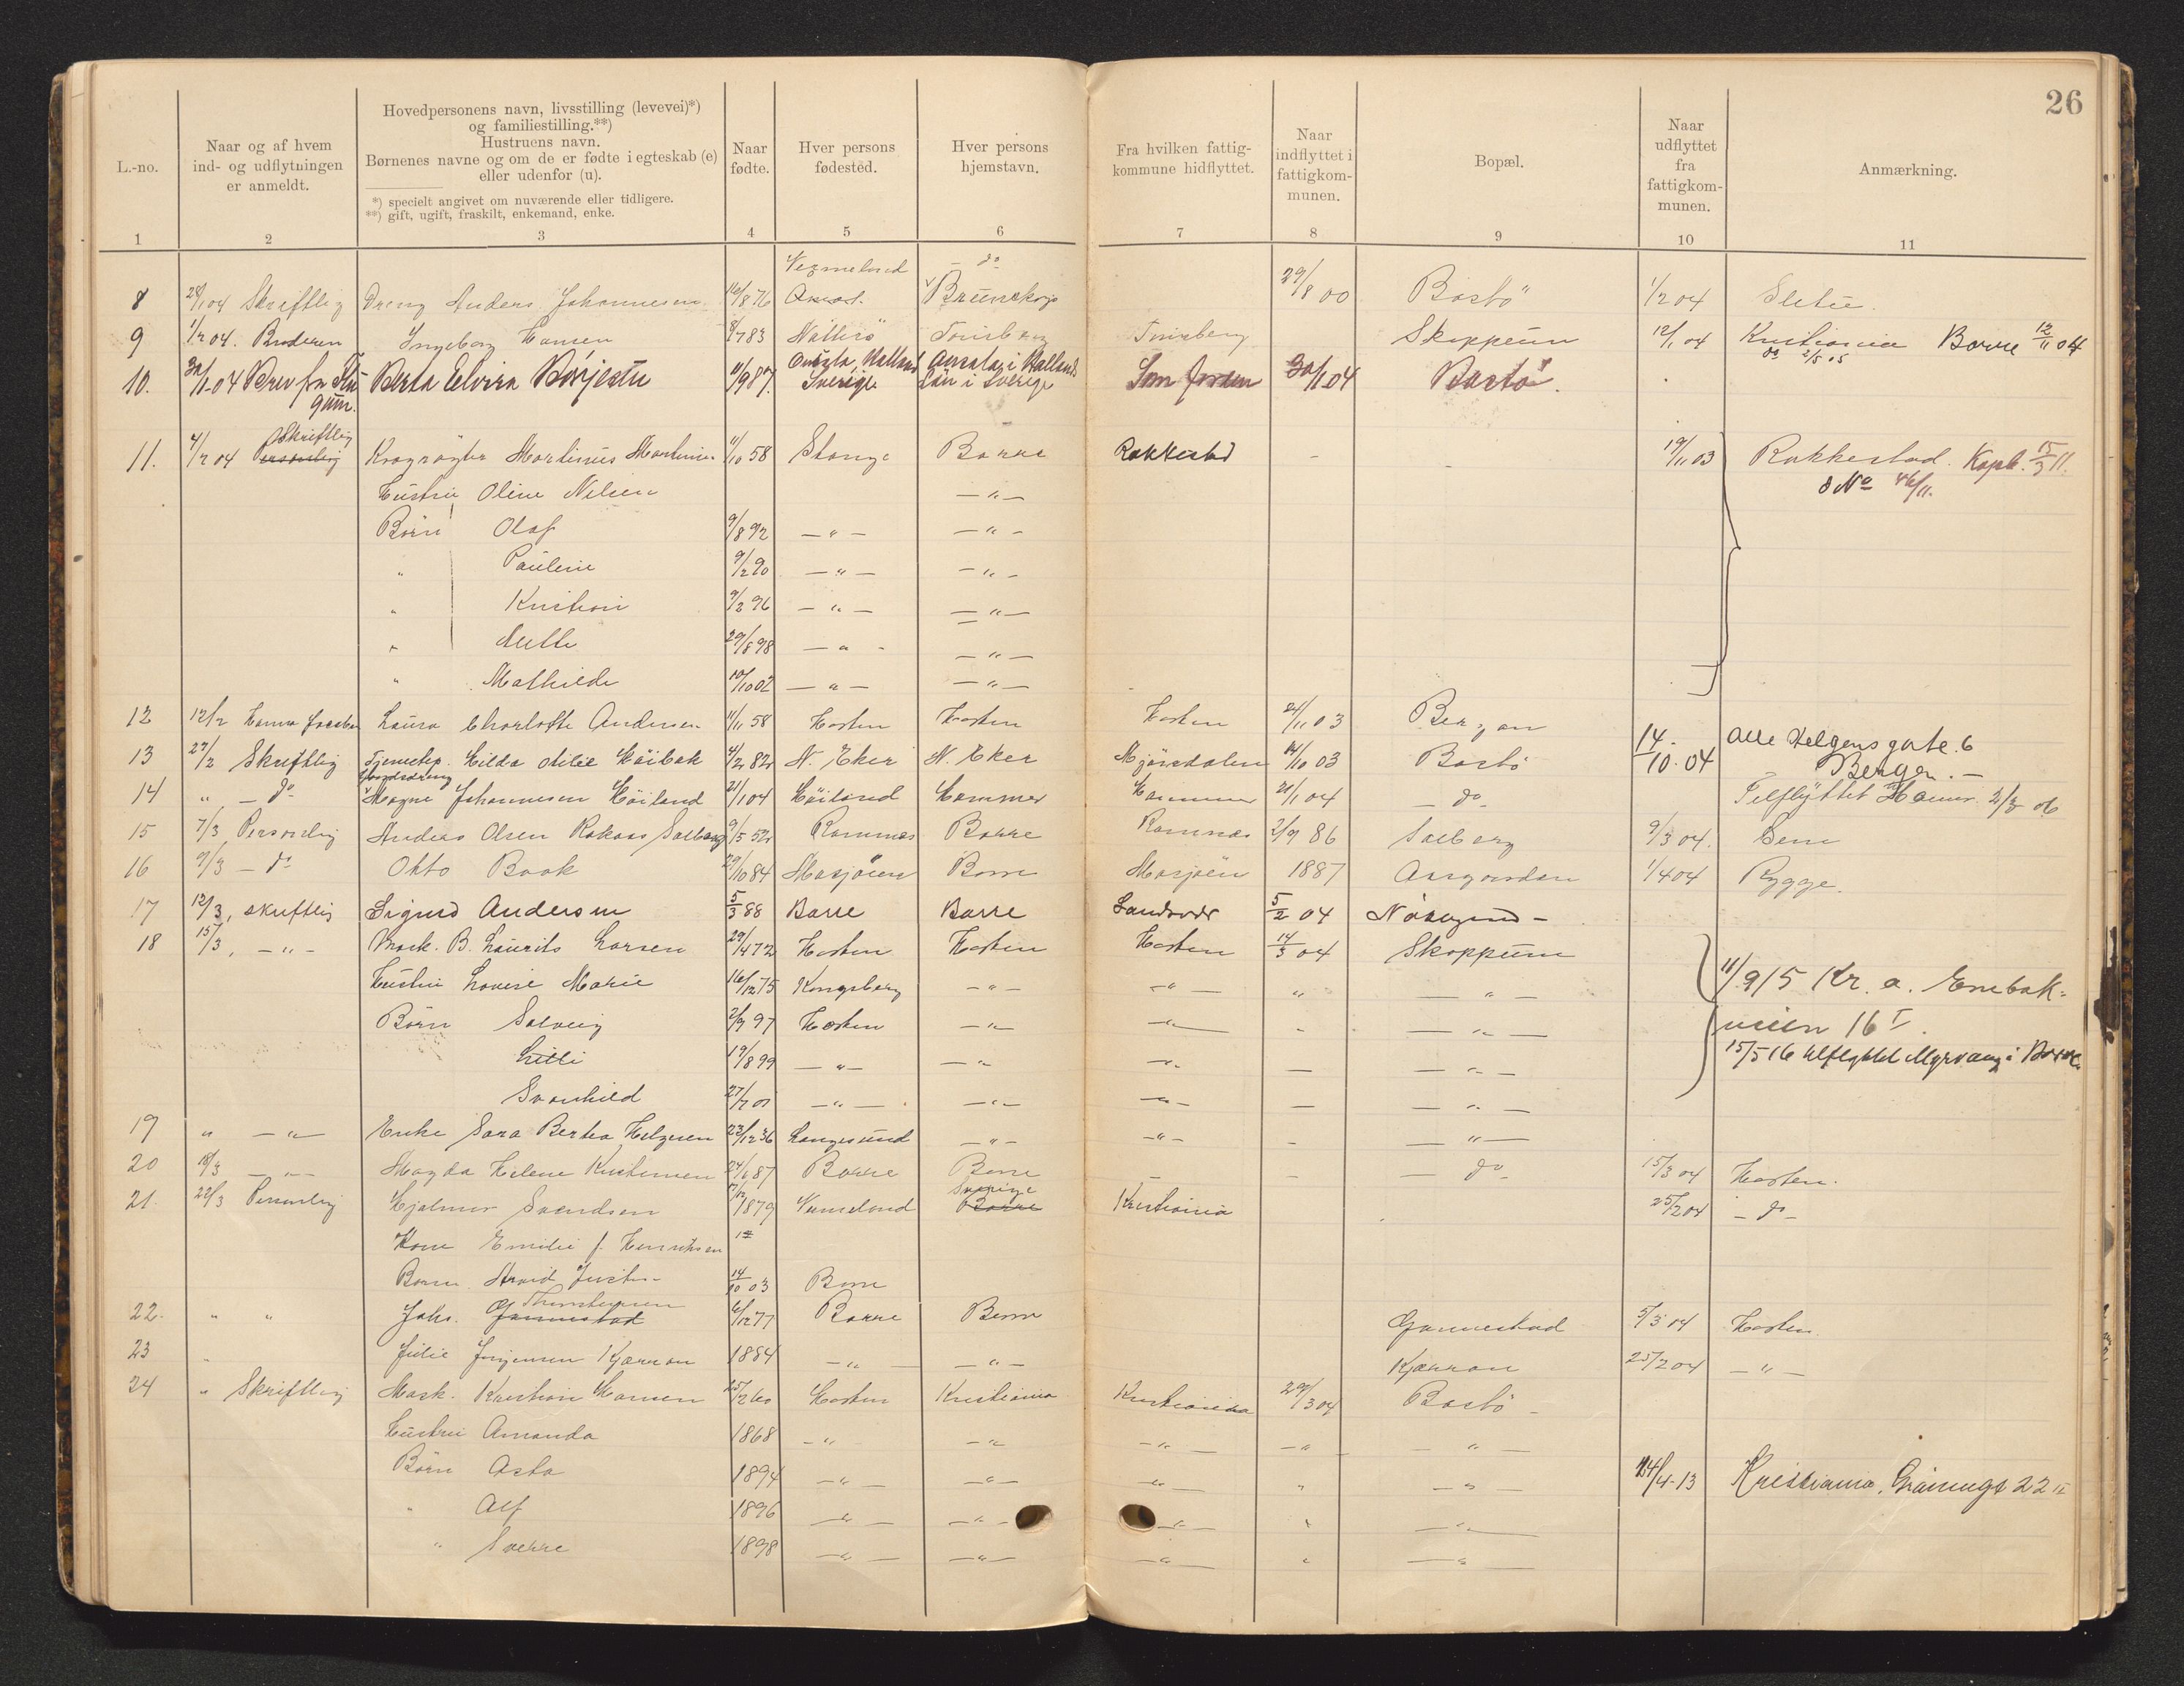 26
L.-no.
Naar og af hvem
ind- og udflytningen
er anmeldt.
Hovedpersonens navn, livsstilling (levevei)*)
og familiestilling.**)
Hustruens navn.
Børnenes navne og om de er fødte i egteskab (e)
eller udenfor (u).
*) specielt angivet om nuværende eller tidligere.
**) gift, ugift, fraskilt, enkemand, enke.
Naar
fødte.
Hver persons
fødested.
Hver persons
hjemstavn.
Fra hvilken fattig-
kommune hidflyttet.
Naar
indflyttet i
fattigkom-
munen.
Bopæl.
Naar
udflyttet
fra
fattigkom-
munen.
Anmærkning.
1 2 3 4 5 6 7 8 9 10 11
Vermeland - do -
8 28/1 04 Skriftlig Dreng Anders Johannesen 16/8 76 29/8 00 Bastö 1/2 04
9 1/2 04. Broderen Ingeborg Hansen 8/7 83 Nötterö Tönsberg Tönsberg Skoppum 12/1 04 Kristiania Borre 12/11 04
do 2/5 05
10. 30/1-04 Brev fra Berta Elvira Börjesta 11/9 87. Halland i Hallands
Sverige Län i Sverige 30/1 04 Bastö.
Skriftlig
11. 4/2 04 Personlig Martinus 1/10 58 Stange Borre Rakkestad - - 19/11 03 Rakkestad. 15/3 11.
Hustru Oline Nilsen - " -
Börn Olaf 9/8 92 - " - - " -
" Pauline 9/2 90 - " - - " -
" Kristian 9/2 96 - " - - " -
" 29/8 98 - " - - " -
" Mathilde 10/10 02 - " - - " -
12 12/2 Laura Charlotte Andersen 11/11 58 Horten Horten Horten 24/11 03
13 27/2 Skriftlig Tjenestep. Hilda Otilie 4/2 82 N. Eker N. Eker Mjöndalen 10 03 Bastö 14. Olle Helgens gate 6
10. 04 Bergen. -
14 " - do - Magne Johannesen Höiland 21/1 04 Höiland Hammer Hammer 21/1 04 - do - Tilflyttet Hamar 2/3 06
15 7/3 Personlig Anders Olsen Solberg 9/5 52 Ramnæs Borre Ramnæs 2/9 86 Solberg 9/3 04. Sem
16 9/3 - do Otto Baak 29/10 84 Mosjöen Borre Mosjöen 1887 Aasgaarden 1/4 04 Rygge.
17 12/3, skriftlig Sigurd Andersen 5/3 88 Borre Borre Sandsvær 5/2 04
18 15/3, - " - B. Laurits Larsen 29/4 72 Horten Horten Horten 14/3 04 Skoppum
Hustru Lovise Marie 16/12 75 Kongsberg - " - - " - " - " - 11/9 15 Kr. a. Enebak-
Börn Solveig 2/9 97 Horten - " - - " - - - " - veien 16 I.
Lilli 19/8 99 - " - - " - - " - - - " - 15/5 16 tilflyttet Myrvang i Borre.
Svanhild 27/7 01 - " - - " - - " - - - " -
19 " - " - Enke Sara Berta Helgesen 23/12 36 Langesund - " - - " - - - " -
20 18/3 - " - Magda Helene Kristensen 24/6 87 Borre Borre - - - do - 15/3 04 Horten.
Sverige
21. 22/3 Personlig Hjalmar Svendsen 1879 Vermeland Borre Kristiania 25/2 04 - do -
Kone Emilie f. Henriksen
Barn Arvid 14/10 03 Borre
Thorstensen
22. " " Johs. Gannestad 6/12 77 Borre Borre Gannestad 5/3 04 Horten.
23 " Julie Jörgensen Kjærran 1884 - " - - " - Kjærran 25/2 04 - " -
24 " Skriftlig Mask. Kristian Hansen 25/12 60 Horten Kristiania Kristiania 29/3 04 Bastö -
Hustru Amanda 1868 - " - - " - - " - - " - - " -
Börn Asta 1894 - " - - " - - " - " - " - 14/4-13 Kristiania, 22 II
" Alf 1896 - " - - " - - " - " - " -
" Sverre 1898 - " - - " - - " - " - " -